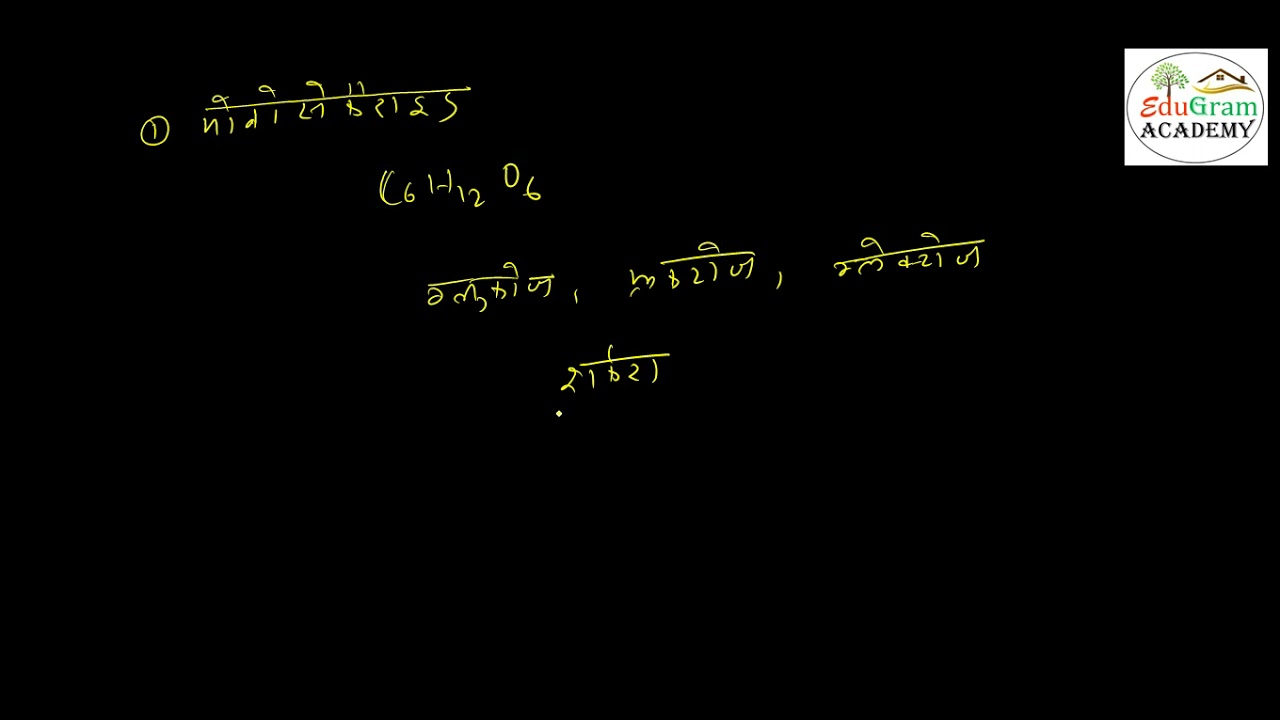 ① मोनोसेकेराइड
C6H12O6
ग्लुकोज, फ्रुक्टोज, ग्लेक्टोज
शर्करा
EduGram
ACADEMY